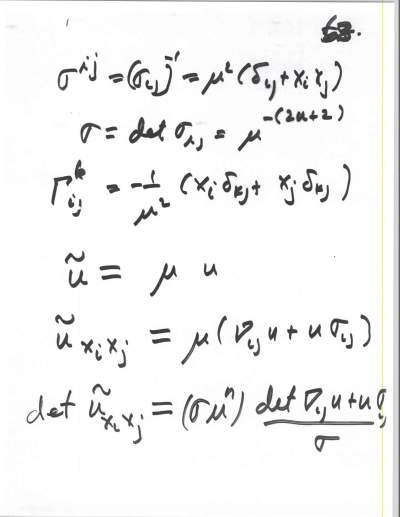 63.
σ^{ij} = (σ_{ij})^{-1} = μ²(δ_{ij} + x_i x_j)
σ = det σ_{ij} = μ^{-(2n+2)}
Γ_{ij}^k = -\frac{1}{μ²} (x_i δ_{kj} + x_j δ_{kj})
ũ = μ u
ũ_{x_i x_j} = μ(∇_{ij} u + u σ_{ij})
det ũ_{x_i x_j} = (σ μ^n) \frac{det ∇_{ij} u + u σ_{ij}}{σ}